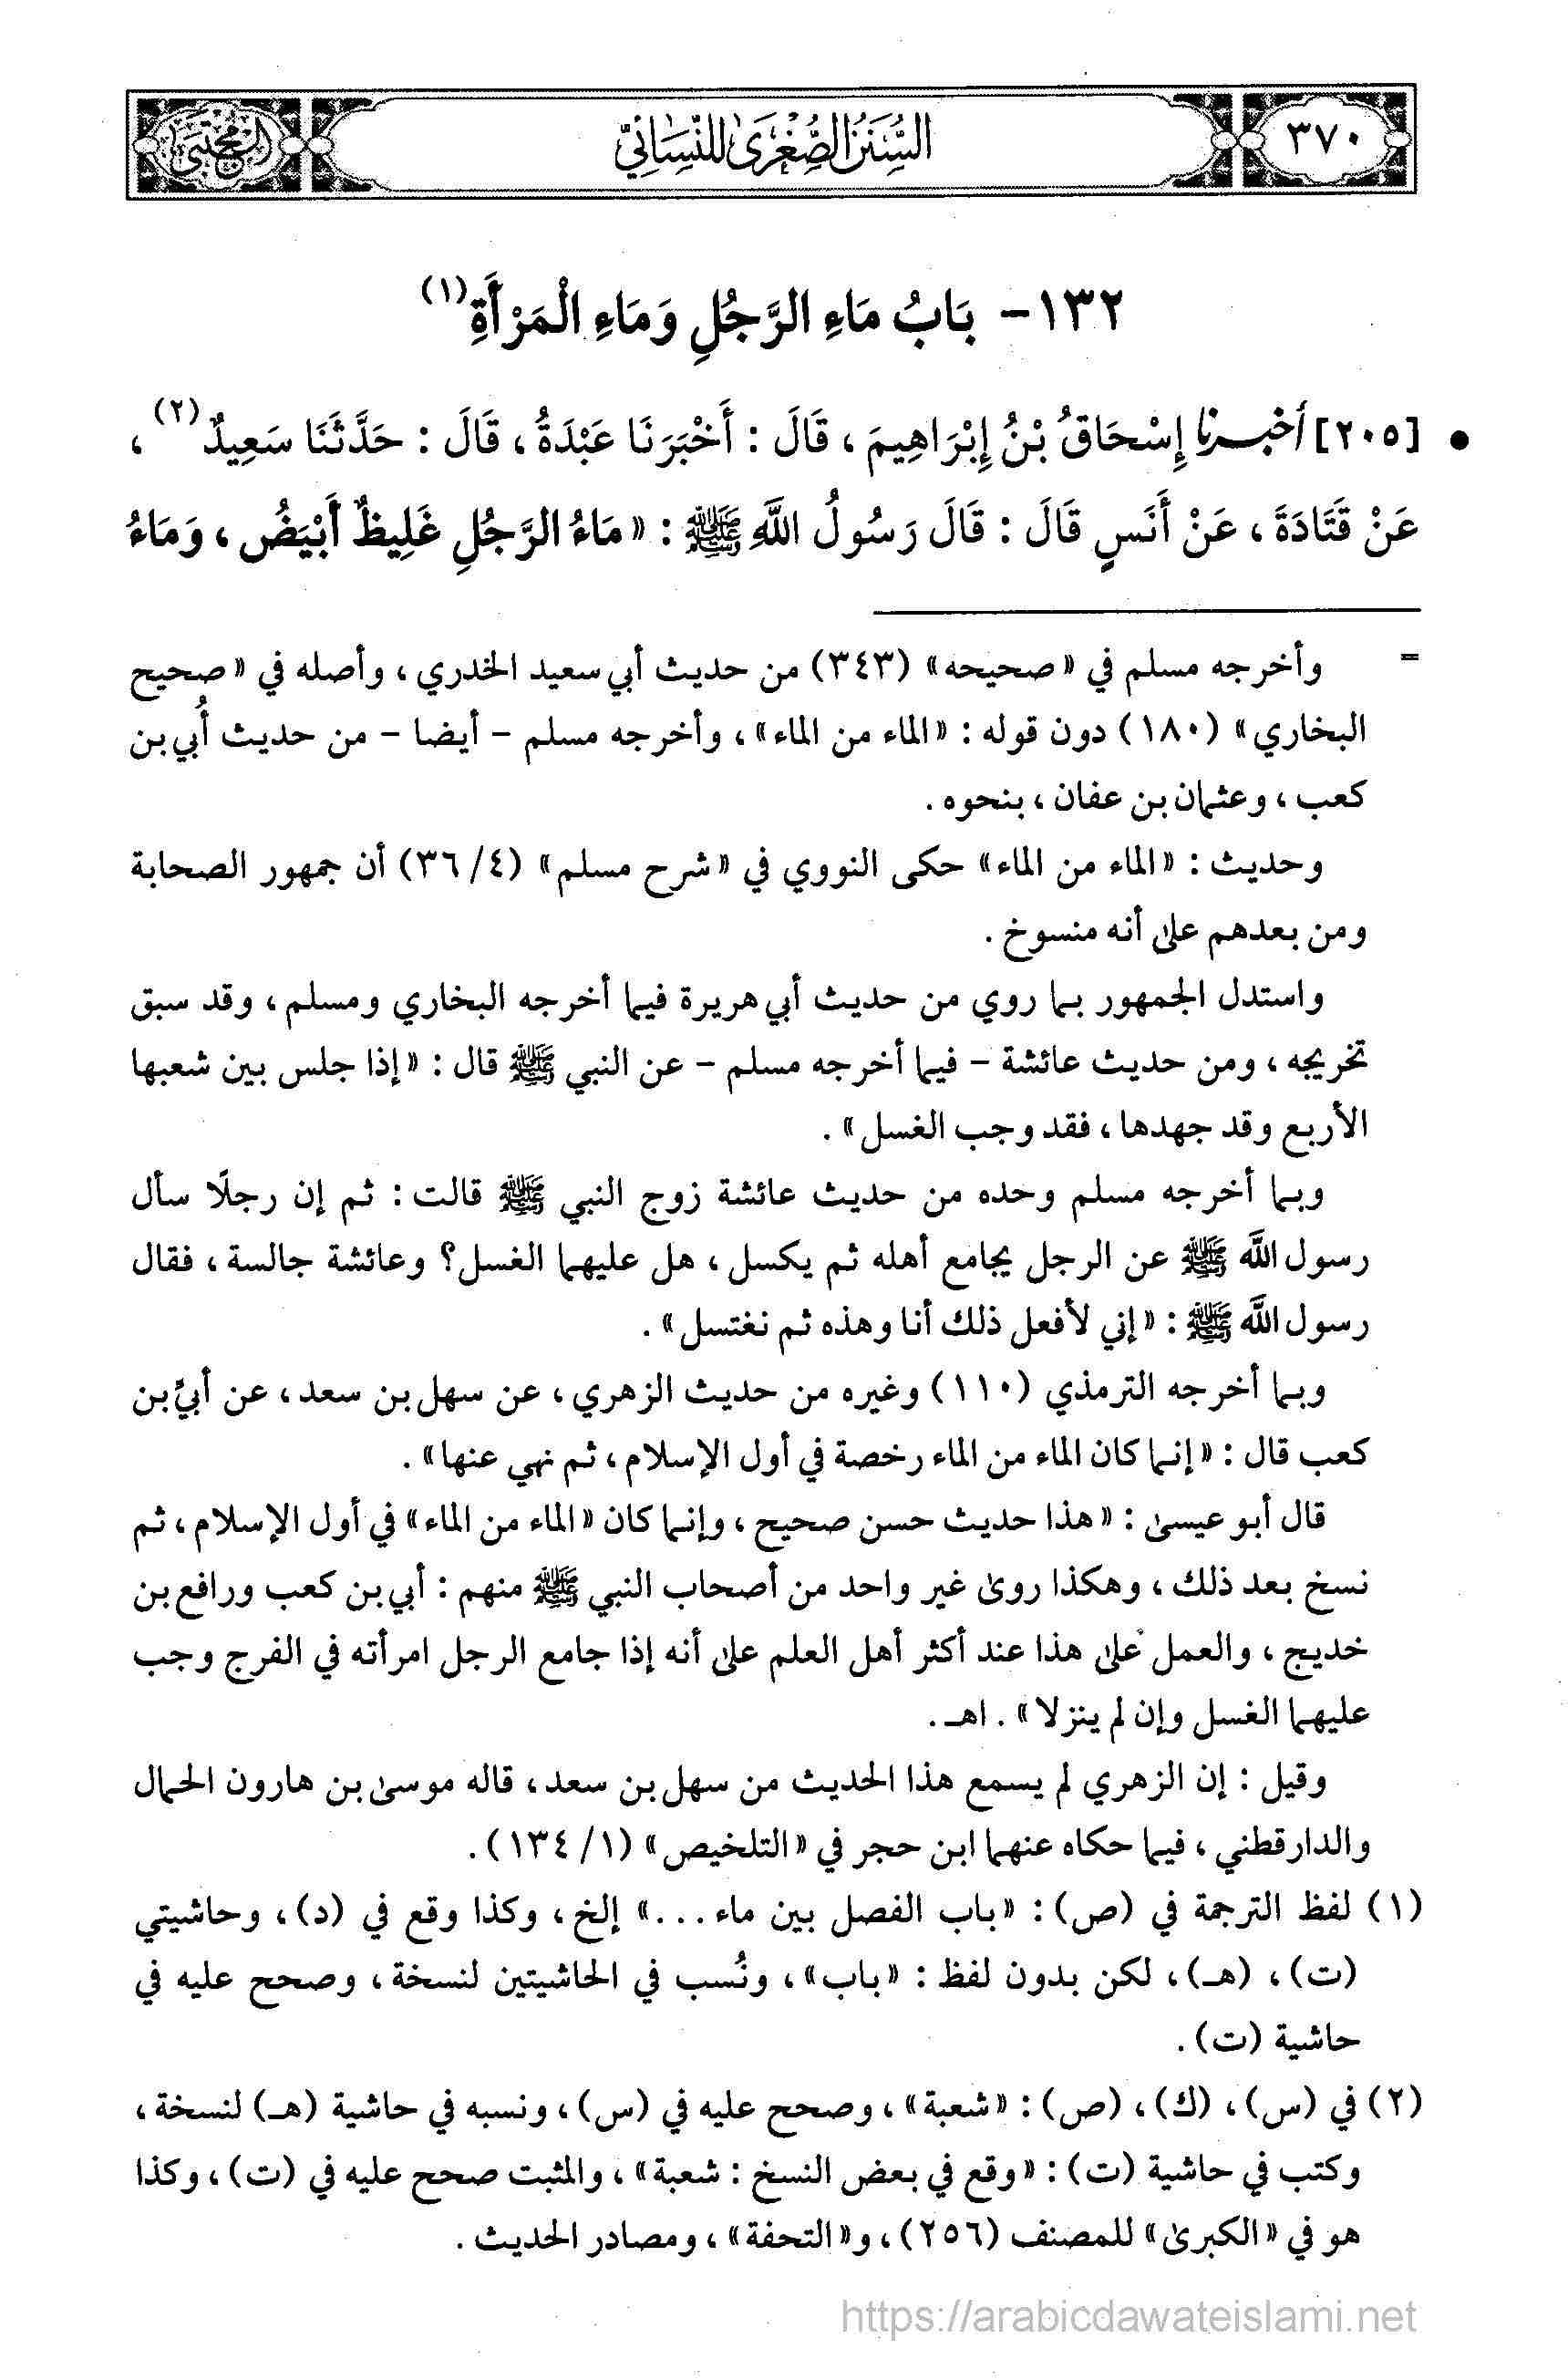 ٣٧٠
السُّنَنُ الصُّغْرَىٰ لِلنَّسَائِيِّ
المجتبى
١٣٢- بَابُ مَاءِ الرَّجُلِ وَمَاءِ الْمَرْأَةِ(١)
• [٢٠٥] أَخْبَرَنَا إِسْحَاقُ بْنُ إِبْرَاهِيمَ، قَالَ: أَخْبَرَنَا عَبْدَةُ، قَالَ: حَدَّثَنَا سَعِيدٌ(٢)،
عَنْ قَتَادَةَ، عَنْ أَنَسٍ قَالَ: قَالَ رَسُولُ اللَّهِ ﷺ: «مَاءُ الرَّجُلِ غَلِيظٌ أَبْيَضُ، وَمَاءُ
= وأخرجه مسلم في «صحيحه» (٣٤٣) من حديث أبي سعيد الخدري، وأصله في «صحيح
البخاري» (١٨٠) دون قوله: «الماء من الماء»، وأخرجه مسلم - أيضا - من حديث أُبي بن
كعب، وعثمان بن عفان، بنحوه.
وحديث: «الماء من الماء» حكى النووي في «شرح مسلم» (٤/ ٣٦) أن جمهور الصحابة
ومن بعدهم علىٰ أنه منسوخ.
واستدل الجمهور بما روي من حديث أبي هريرة فيما أخرجه البخاري ومسلم، وقد سبق
تخريجه، ومن حديث عائشة - فيما أخرجه مسلم - عن النبي ﷺ قال: «إذا جلس بين شعبها
الأربع وقد جهدها، فقد وجب الغسل».
وبما أخرجه مسلم وحده من حديث عائشة زوج النبي ﷺ قالت: ثم إن رجلًا سأل
رسول اللَّه ﷺ عن الرجل يجامع أهله ثم يكسل، هل عليهما الغسل؟ وعائشة جالسة، فقال
رسول اللَّه ﷺ: «إني لأفعل ذلك أنا وهذه ثم نغتسل».
وبما أخرجه الترمذي (١١٠) وغيره من حديث الزهري، عن سهل بن سعد، عن أبيِّ بن
كعب قال: «إنما كان الماء من الماء رخصة في أول الإسلام، ثم نهي عنها».
قال أبو عيسىٰ: «هذا حديث حسن صحيح، وإنما كان «الماء من الماء» في أول الإسلام، ثم
نسخ بعد ذلك، وهكذا روىٰ غير واحد من أصحاب النبي ﷺ منهم: أبي بن كعب ورافع بن
خديج، والعمل علىٰ هذا عند أكثر أهل العلم علىٰ أنه إذا جامع الرجل امرأته في الفرج وجب
عليهما الغسل وإن لم ينزلا». اهـ.
وقيل: إن الزهري لم يسمع هذا الحديث من سهل بن سعد، قاله موسىٰ بن هارون الحمال
والدارقطني، فيما حكاه عنهما ابن حجر في «التلخيص» (١/ ١٣٤).
(١) لفظ الترجمة في (ص): «باب الفصل بين ماء...» إلخ، وكذا وقع في (د)، وحاشيتي
(ت)، (هـ)، لكن بدون لفظ: «باب»، ونُسب في الحاشيتين لنسخة، وصحح عليه في
حاشية (ت).
(٢) في (س)، (ك)، (ص): «شعبة»، وصحح عليه في (س)، ونسبه في حاشية (هـ) لنسخة،
وكتب في حاشية (ت): «وقع في بعض النسخ: شعبة»، والمثبت صحح عليه في (ت)، وكذا
هو في «الكبرىٰ» للمصنف (٢٥٦)، و«التحفة»، ومصادر الحديث.
https://arabicdawateislami.net